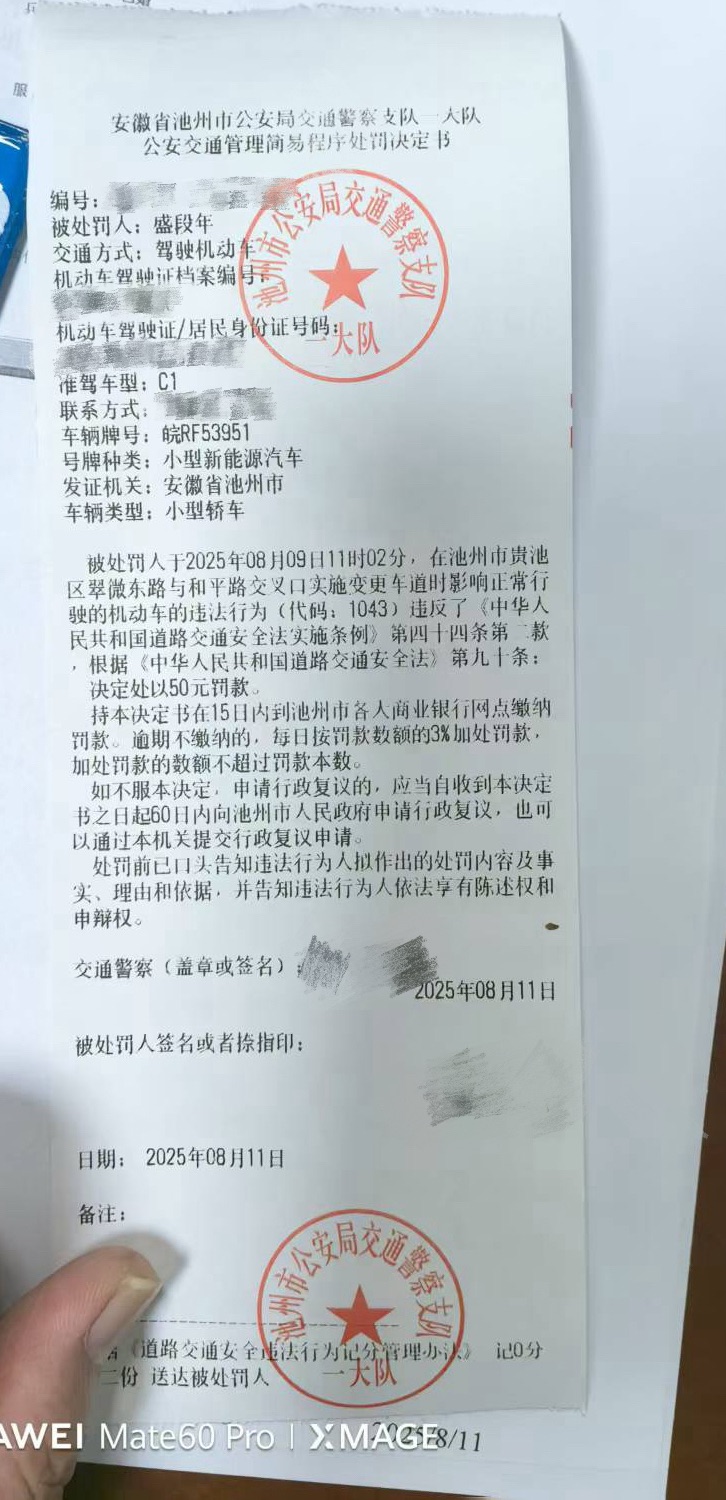 安徽省池州市公安局交通警察支队一大队
公安交通管理简易程序处罚决定书
编号:
被处罚人: 盛段年
交通方式: 驾驶机动车
机动车驾驶证档案编号:
机动车驾驶证/居民身份证号码:
准驾车型: C1
联系方式:
车辆牌号: 皖RF53951
号牌种类: 小型新能源汽车
发证机关: 安徽省池州市
车辆类型: 小型轿车
池州市公安局交通警察支队
一大队
被处罚人于2025年08月09日11时02分, 在池州市贵池
区翠微东路与和平路交叉口实施变更车道时影响正常行
驶的机动车的违法行为 (代码: 1043) 违反了《中华人
民共和国道路交通安全法实施条例》第四十四条第二款
, 根据《中华人民共和国道路交通安全法》第九十条:
决定处以50元罚款。
持本决定书在15日内到池州市各大商业银行网点缴纳
罚款。逾期不缴纳的, 每日按罚款数额的3%加处罚款,
加处罚款的数额不超过罚款本数。
如不服本决定, 申请行政复议的, 应当自收到本决定
书之日起60日内向池州市人民政府申请行政复议, 也可
以通过本机关提交行政复议申请。
处罚前已口头告知违法行为人拟作出的处罚内容及事
实、理由和依据, 并告知违法行为人依法享有陈述权和
申辩权。
交通警察 (盖章或签名):
2025年08月11日
被处罚人签名或者捺指印:
日期: 2025年08月11日
备注:
池州市公安局交通警察支队
一大队
《道路交通安全违法行为记分管理办法》 记0分
二份 送达被处罚人
AWEI Mate60 Pro | XMAGE
2025/8/11